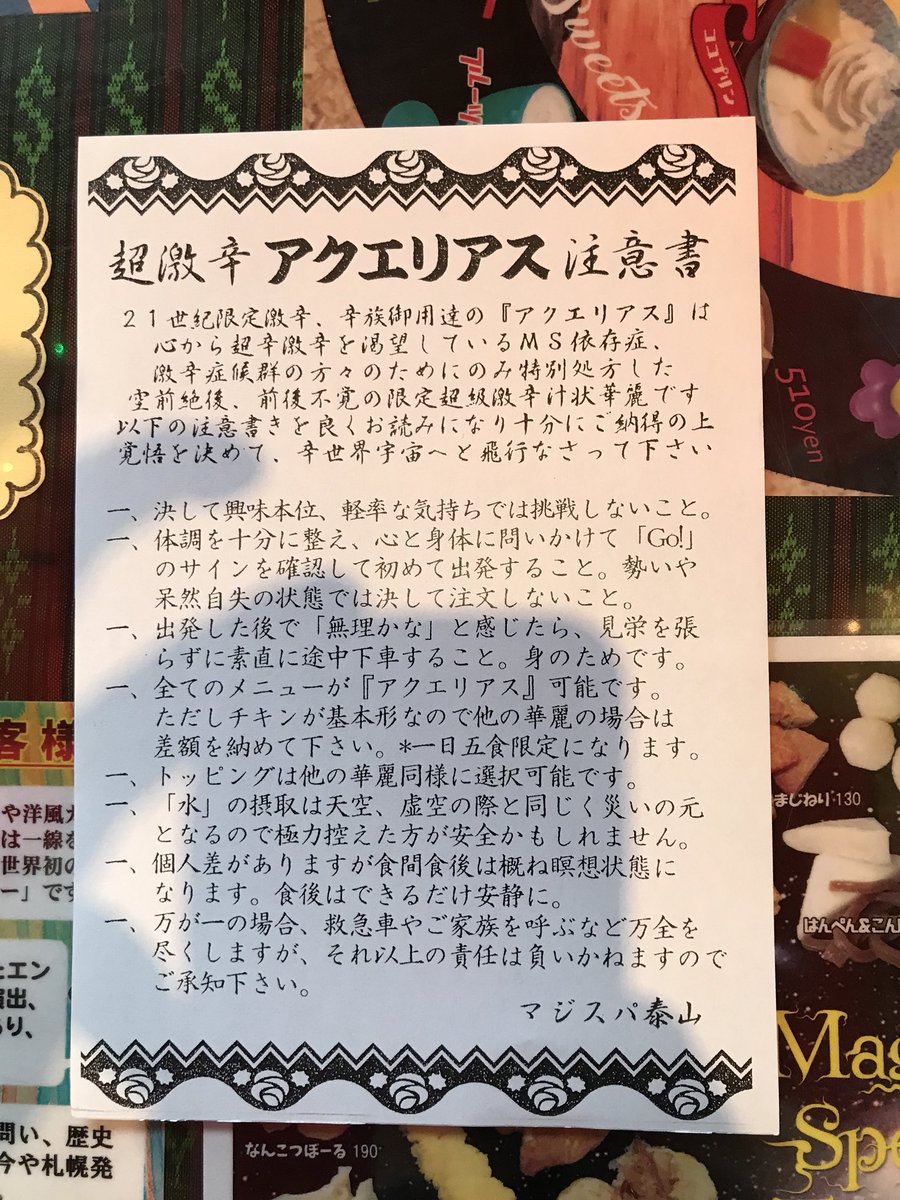 Sweets
ココナッツプリン
フルーツ
510yen
超激辛 アクエリアス 注意書
21世紀限定激辛、辛族御用達の『アクエリアス』は
心から超辛激辛を渇望しているMS依存症、
激辛症候群の方々のためにのみ特別処方した
空前絶後、前後不覚の限定超級激辛汁状華麗です
以下の注意書きを良くお読みになり十分にご納得の上
覚悟を決めて、辛世界宇宙へと飛行なさって下さい
一、決して興味本位、軽率な気持ちでは挑戦しないこと。
一、体調を十分に整え、心と身体に問いかけて「Go!」
のサインを確認して初めて出発すること。勢いや
呆然自失の状態では決して注文しないこと。
一、出発した後で「無理かな」と感じたら、見栄を張
らずに素直に途中下車すること。身のためです。
一、全てのメニューが『アクエリアス』可能です。
ただしチキンが基本形なので他の華麗の場合は
差額を納めて下さい。*一日五食限定になります。
一、トッピングは他の華麗同様に選択可能です。
一、「水」の摂取は天空、虚空の際と同じく災いの元
となるので極力控えた方が安全かもしれません。
一、個人差がありますが食間食後は概ね瞑想状態に
なります。食後はできるだけ安静に。
一、万が一の場合、救急車やご家族を呼ぶなど万全を
尽くしますが、それ以上の責任は負いかねますので
ご承知下さい。
マジスパ泰山
客様
や洋風カ
は一線を
世界初の
ー」です
とエン
演出、
あり、
問い、歴史
今や札幌発
まじねり 130
はんぺん&こん
なんこつぼーる 190
Mag
Spe